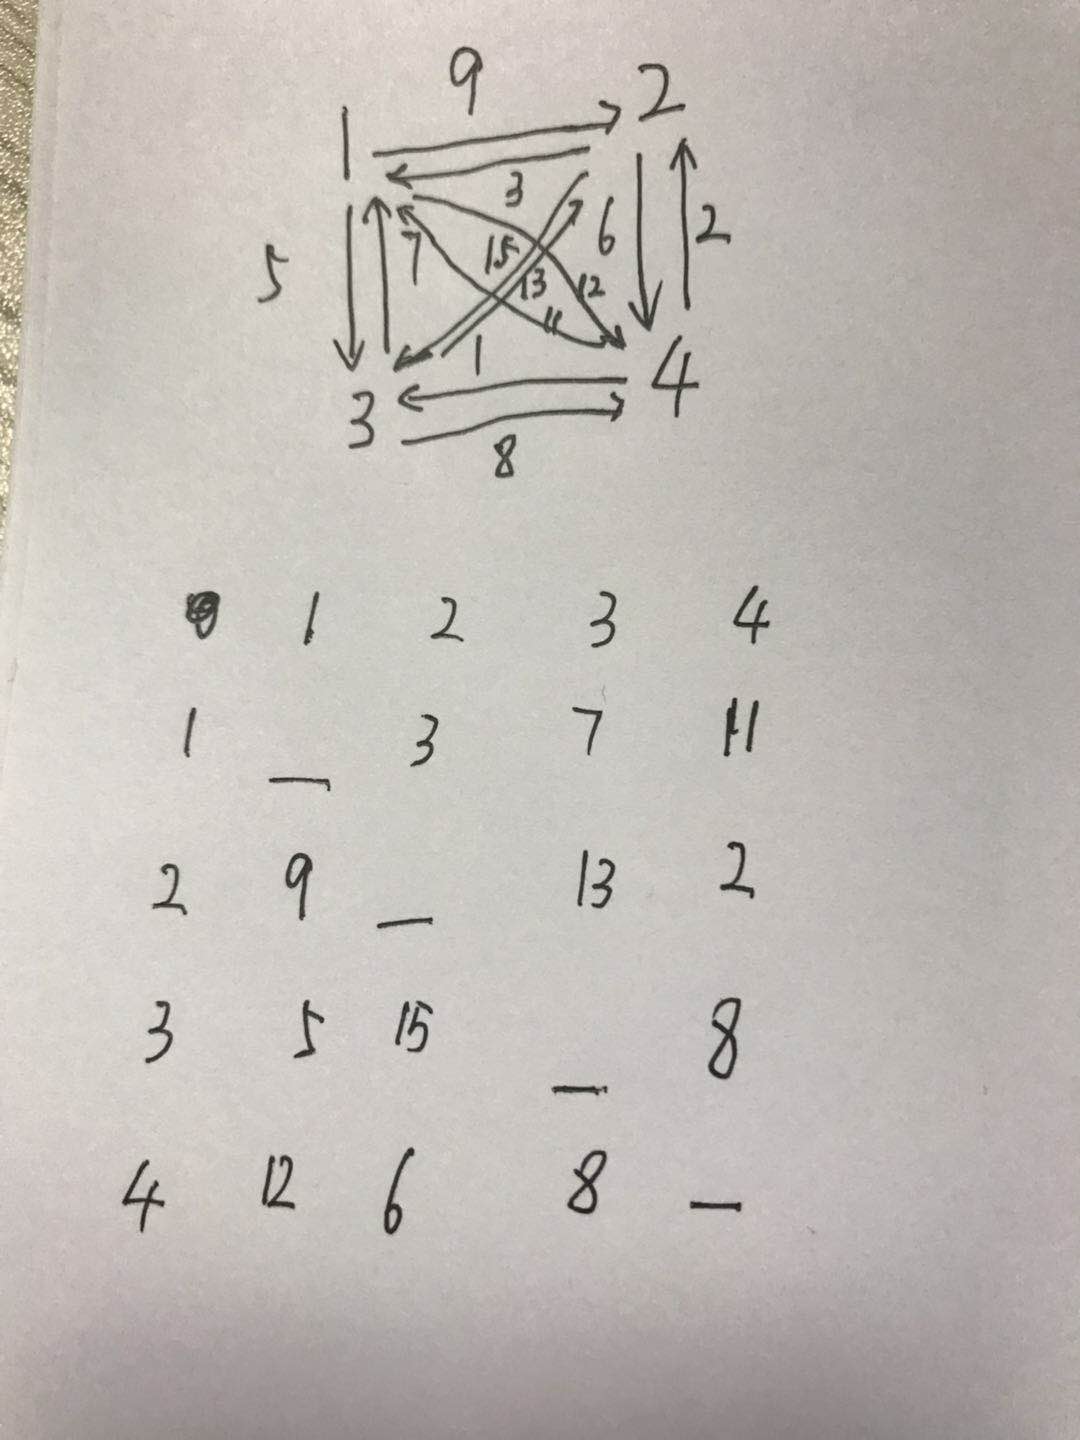 9
1 2
3
5 7 15 6 2
13 12
11
1
3 4
8
1 2 3 4
1 — 3 7 11
2 9 — 13 2
3 5 15 — 8
4 12 6 8 —